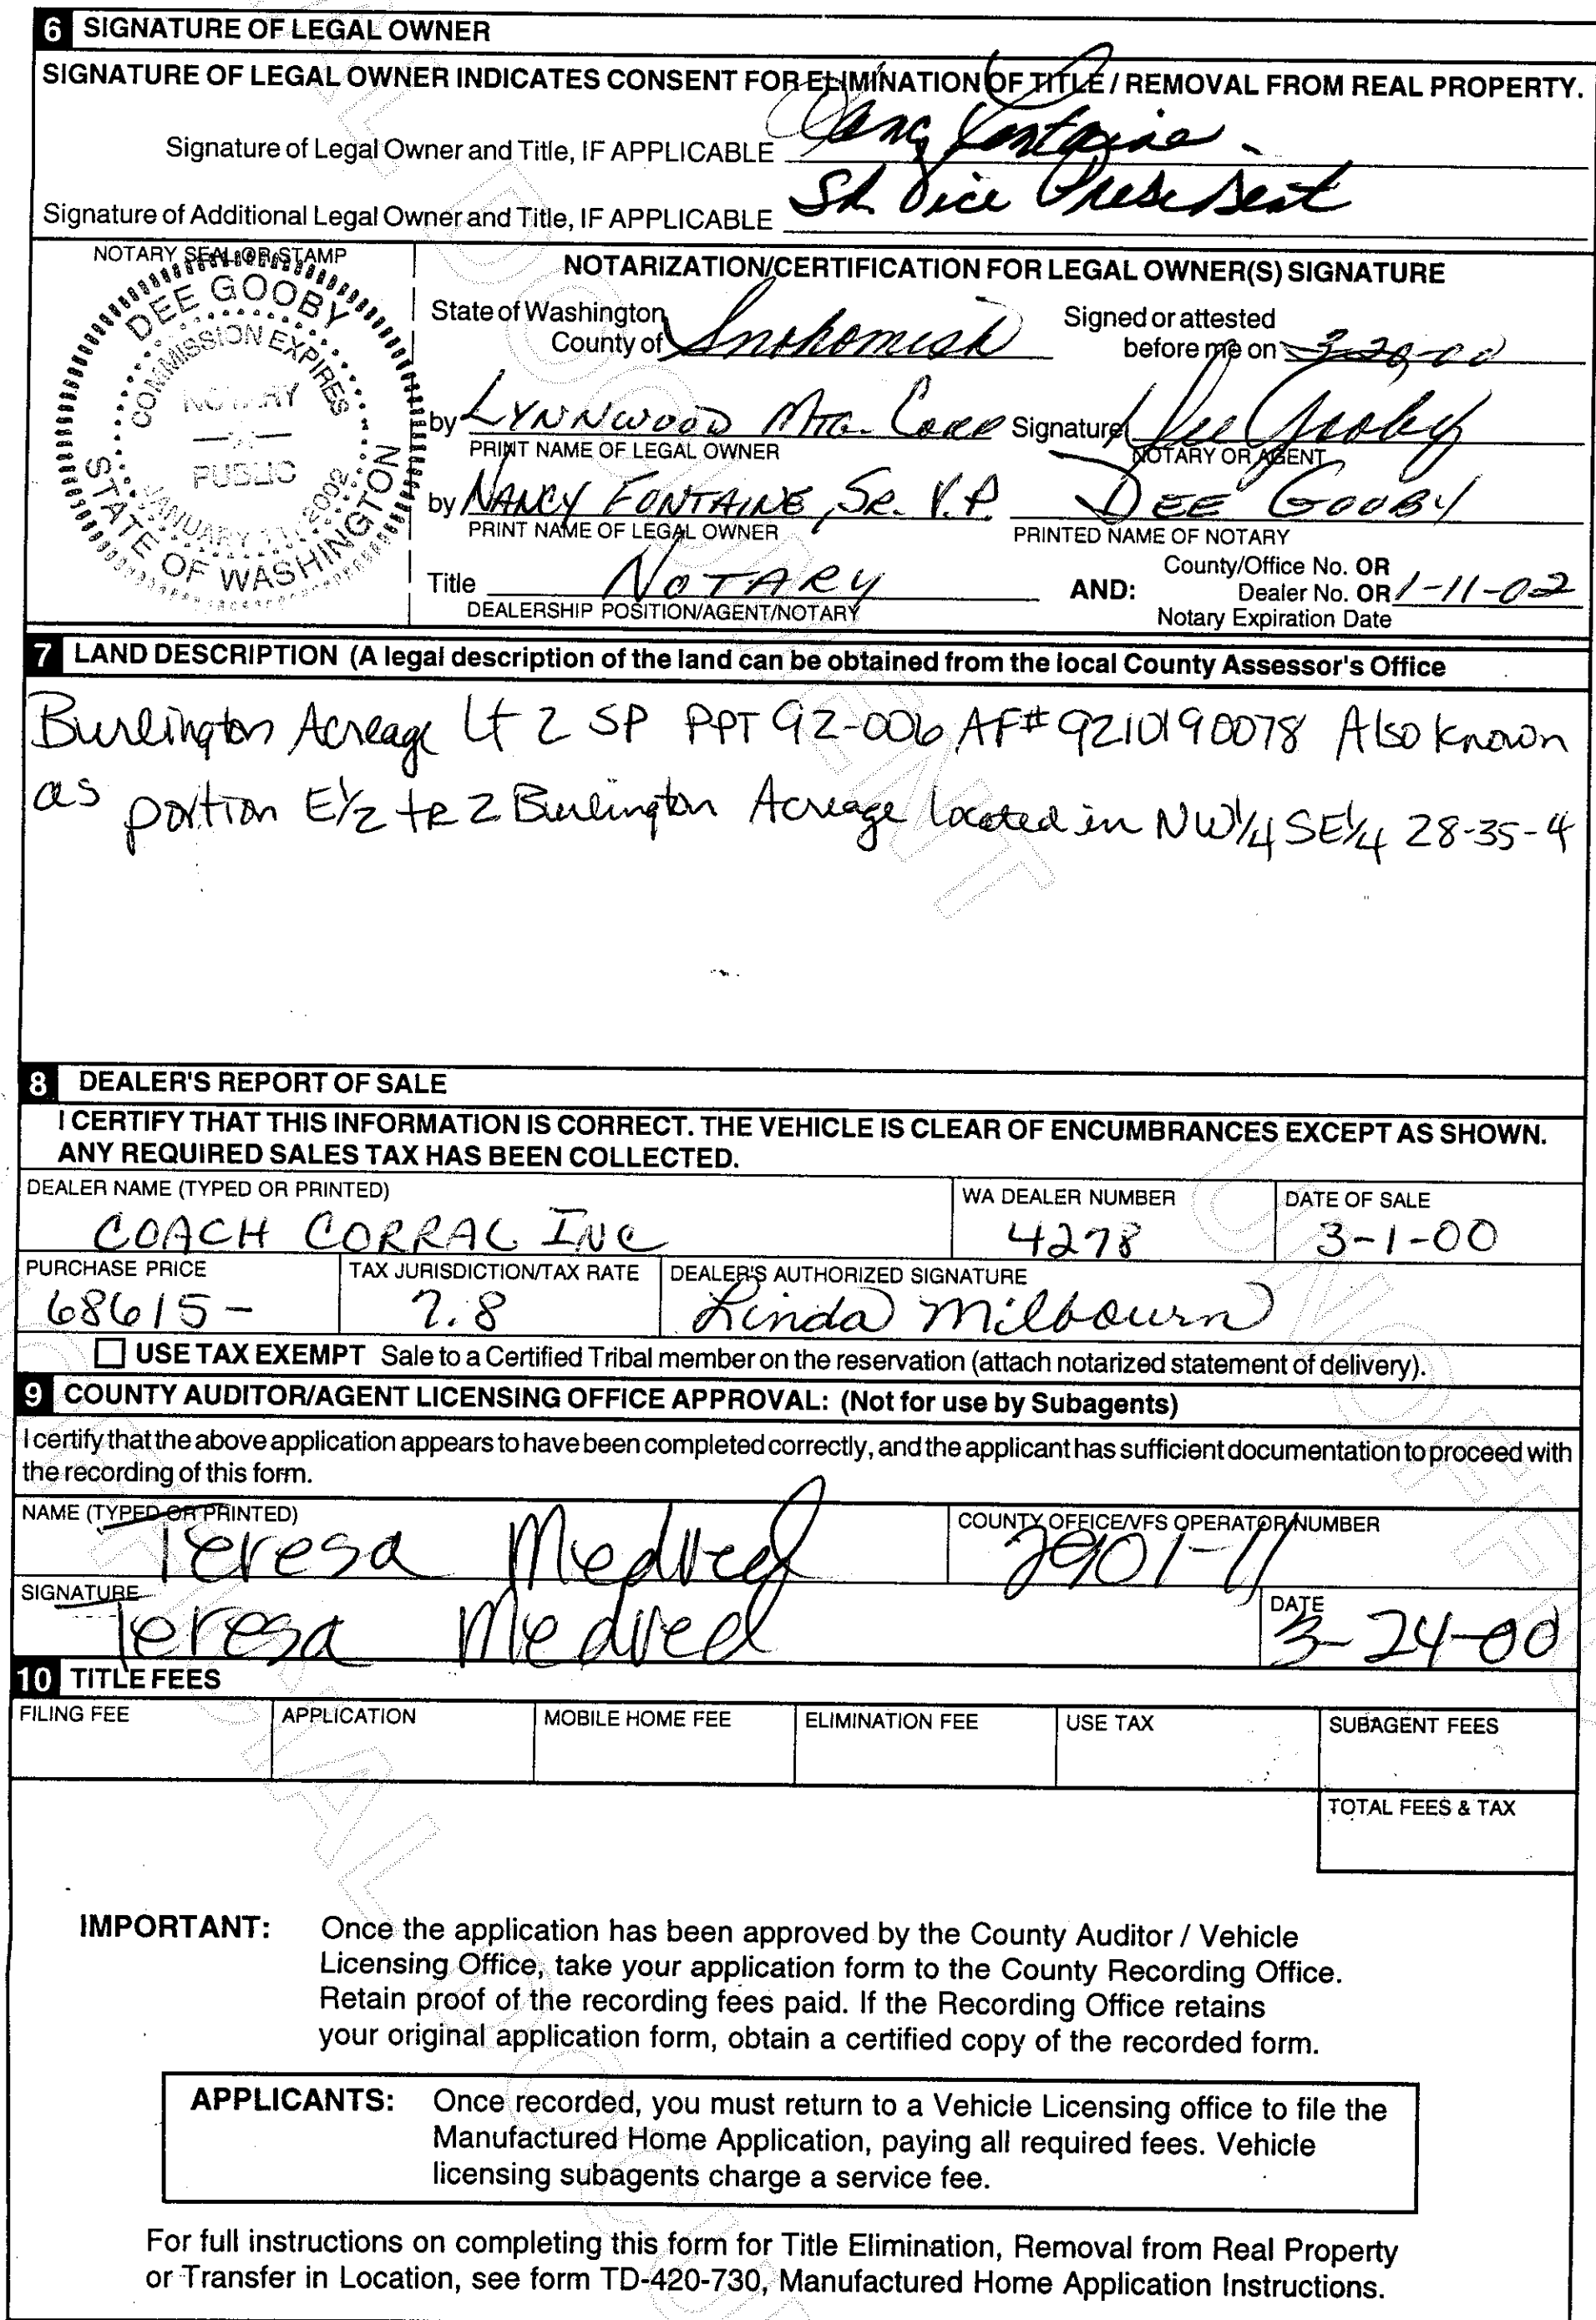 6 SIGNATURE OF LEGAL OWNER
SIGNATURE OF LEGAL OWNER INDICATES CONSENT FOR ELIMINATION OF TITLE / REMOVAL FROM REAL PROPERTY.
Signature of Legal Owner and Title, IF APPLICABLE Nancy Fontaine
Signature of Additional Legal Owner and Title, IF APPLICABLE Sr. Vice President
NOTARY SEAL OR STAMP
DEE GOOBY
COMMISSION EXPIRES
NOTARY
PUBLIC
JANUARY 11, 2002
STATE OF WASHINGTON
NOTARIZATION/CERTIFICATION FOR LEGAL OWNER(S) SIGNATURE
State of Washington
County of Snohomish
Signed or attested
before me on 3-20-00
by LYNNWOOD MTG. CORP Signature Dee Gooby
PRINT NAME OF LEGAL OWNER NOTARY OR AGENT
by NANCY FONTAINE, SR. V.P. DEE GOOBY
PRINT NAME OF LEGAL OWNER PRINTED NAME OF NOTARY
Title NOTARY
DEALERSHIP POSITION/AGENT/NOTARY
AND: County/Office No. OR
Dealer No. OR 1-11-02
Notary Expiration Date
7 LAND DESCRIPTION (A legal description of the land can be obtained from the local County Assessor's Office
Burlington Acreage Lt 2 SP PPT 92-006 AF# 9210190078 Also known
as portion E1/2 tr 2 Burlington Acreage located in NW1/4 SE1/4 28-35-4
8 DEALER'S REPORT OF SALE
I CERTIFY THAT THIS INFORMATION IS CORRECT. THE VEHICLE IS CLEAR OF ENCUMBRANCES EXCEPT AS SHOWN.
ANY REQUIRED SALES TAX HAS BEEN COLLECTED.
DEALER NAME (TYPED OR PRINTED) WA DEALER NUMBER DATE OF SALE
COACH CORRAL INC 4278 3-1-00
PURCHASE PRICE TAX JURISDICTION/TAX RATE DEALER'S AUTHORIZED SIGNATURE
68615- 7.8 Linda Milbourn
USE TAX EXEMPT Sale to a Certified Tribal member on the reservation (attach notarized statement of delivery).
9 COUNTY AUDITOR/AGENT LICENSING OFFICE APPROVAL: (Not for use by Subagents)
I certify that the above application appears to have been completed correctly, and the applicant has sufficient documentation to proceed with
the recording of this form.
NAME (TYPED OR PRINTED) COUNTY OFFICE/VFS OPERATOR NUMBER
Teresa Medved 2901-11
SIGNATURE DATE
Teresa Medved 3-24-00
10 TITLE FEES
FILING FEE APPLICATION MOBILE HOME FEE ELIMINATION FEE USE TAX SUBAGENT FEES
TOTAL FEES & TAX
IMPORTANT: Once the application has been approved by the County Auditor / Vehicle
Licensing Office, take your application form to the County Recording Office.
Retain proof of the recording fees paid. If the Recording Office retains
your original application form, obtain a certified copy of the recorded form.
APPLICANTS: Once recorded, you must return to a Vehicle Licensing office to file the
Manufactured Home Application, paying all required fees. Vehicle
licensing subagents charge a service fee.
For full instructions on completing this form for Title Elimination, Removal from Real Property
or Transfer in Location, see form TD-420-730, Manufactured Home Application Instructions.
UNOFFICIAL DOCUMENT